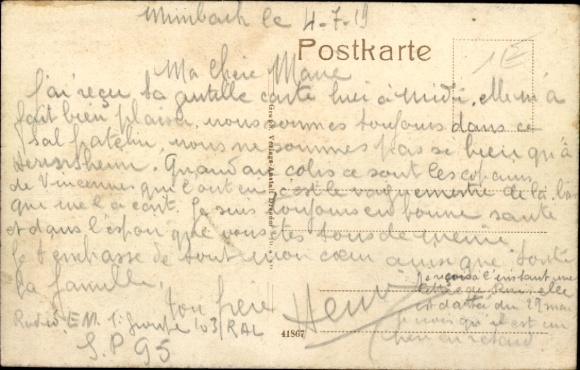 Mimbach le 4-7-19
Postkarte
1E
Ma chère Marie
J'ai reçu ta gentille carte hier à midi, elle m'a
fait bien plaisir, nous sommes toujours dans ce
sal patelin, nous ne sommes pas si bien qu'à
Quand au colis ce sont les copains
de Vincennes qui l'ont eu, c'est le vaguemestre de là bas
qui me l'a écrit. Je suis toujours en bonne santé
et dans l'espoir que vous êtes tous de même.
Je t'embrasse de tout mon cœur ainsi que toute
la famille.
ton frère
Henri
Radio E.M. 1r Groupe 103/RAL
S.P 95
Je reçois à l'instant une
lettre de elle
est datée du 29 mai
je vois qu'il est un
en retard
41867